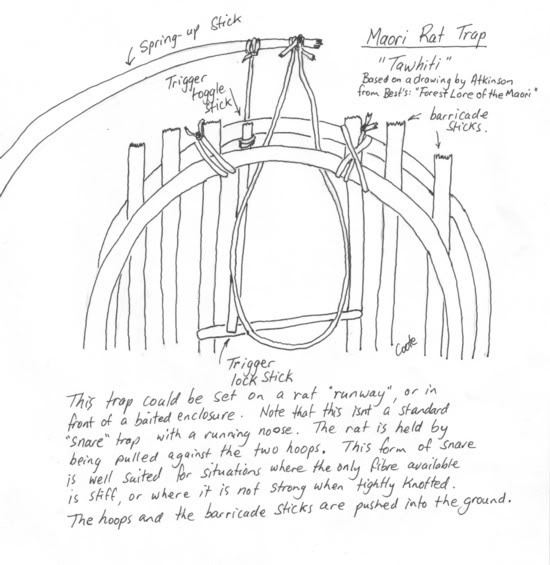 Spring-up Stick
Maori Rat Trap
"Tawhiti"
Based on a drawing by Atkinson
from Best's: "Forest Lore of the Maori"
Trigger
toggle
stick
barricade
sticks.
Trigger
lock stick
This trap could be set on a rat "runway", or in
front of a baited enclosure. Note that this isnt a standard
"snare" trap with a running noose. The rat is held by
being pulled against the two hoops. This form of snare
is well suited for situations where the only fibre available
is stiff, or where it is not strong when tightly knotted.
The hoops and the barricade sticks are pushed into the ground.